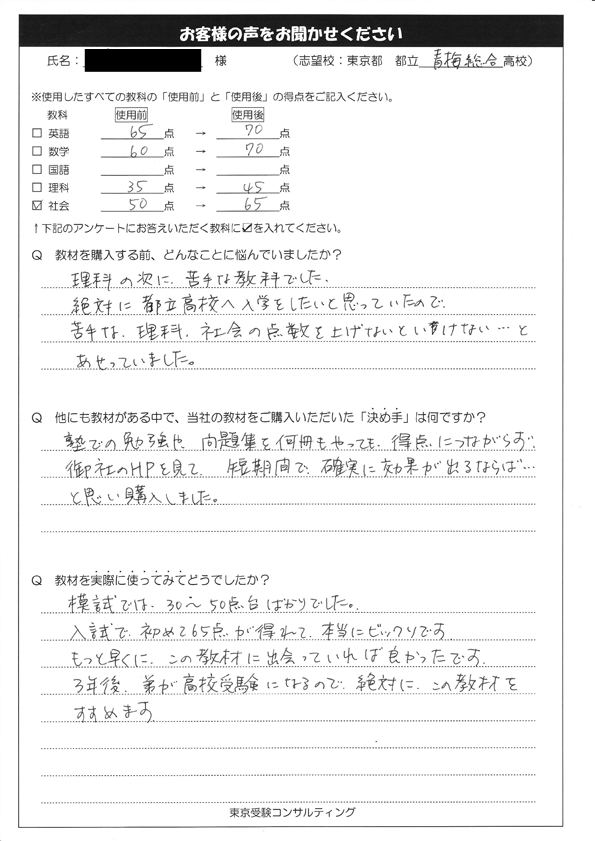 お客様の声をお聞かせください
氏名： 様 （志望校：東京都 都立 青梅総合 高校）
※使用したすべての教科の「使用前」と「使用後」の得点をご記入ください。
教科 使用前 使用後
□ 英語 65 点 → 70 点
□ 数学 60 点 → 70 点
□ 国語 点 → 点
□ 理科 35 点 → 45 点
☑ 社会 50 点 → 65 点
↑下記のアンケートにお答えいただく教科に☑を入れてください。
Q 教材を購入する前、どんなことに悩んでいましたか？
理科の次に、苦手な教科でした。
絶対に都立高校へ入学をしたいと思っていたので、
苦手な、理科、社会の点数を上げないといけない…と
あせっていました。
Q 他にも教材がある中で、当社の教材をご購入いただいた「決め手」は何ですか？
塾での勉強や、問題集を何冊もやっても、得点につながらず、
御社のHPを見て、短期間で、確実に効果が出るならば…
と思い購入しました。
Q 教材を実際に使ってみてどうでしたか？
模試では、30～50点台ばかりでした。
入試で、初めて65点が得れて、本当にビックリです。
もっと早くに、この教材に出会っていれば良かったです。
3年後、弟が高校受験になるので、絶対に、この教材を
すすめます。
東京受験コンサルティング